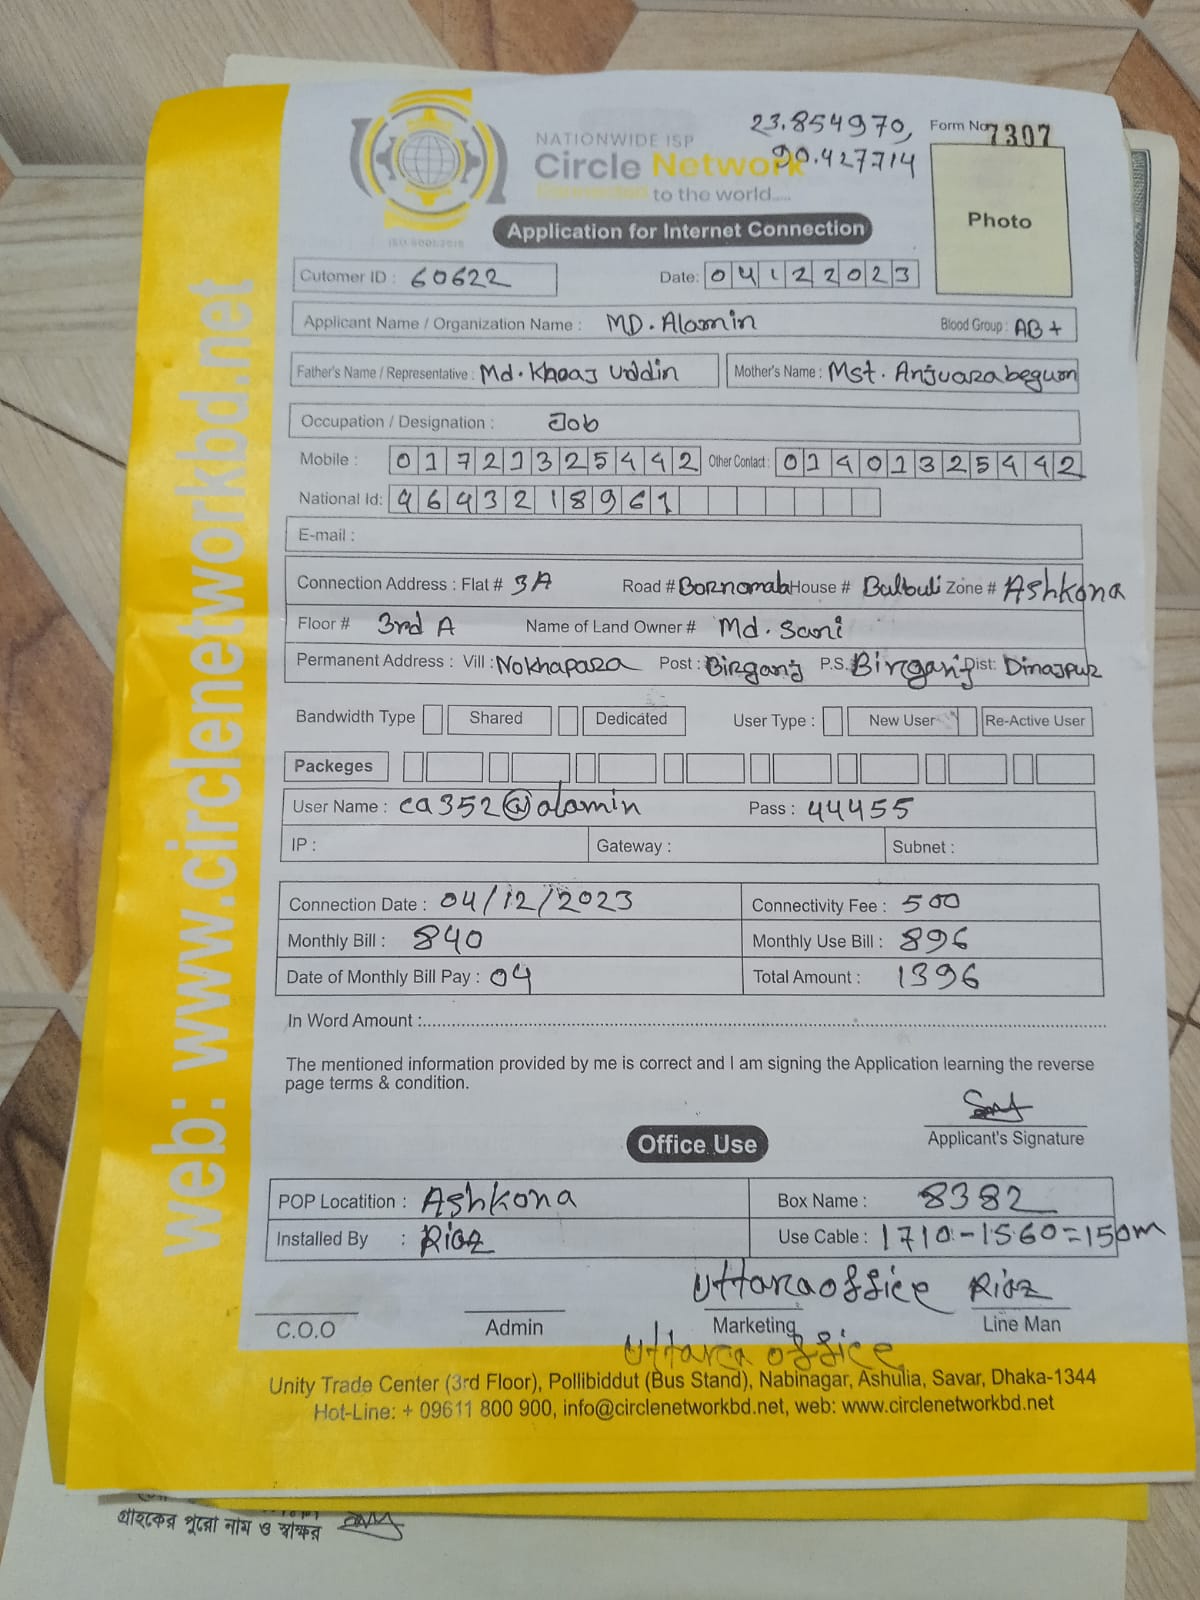 web: www.circlenetworkbd.net
NATIONWIDE ISP
Circle Network
Connected to the world.....
ISO 9001:2015
23.854970,
90.427714
Form No 7307
Photo
Application for Internet Connection
Cutomer ID : 60622 Date: 04122023
Applicant Name / Organization Name : MD. Alamin Blood Group : AB+
Father's Name / Representative : Md. Khoaj Uddin Mother's Name : Mst. Anjuara begum
Occupation / Designation : Job
Mobile : 01721325442 Other Contact : 01401325442
National Id: 9643218961
E-mail :
Connection Address : Flat # 3A Road # Bornomala House # Bulbuli Zone # Ashkona
Floor # 3rd A Name of Land Owner # Md. Sani
Permanent Address : Vill : Nokhapara Post : Birganj P.S. Birganj Dist: Dinajpur
Bandwidth Type Shared Dedicated User Type : New User Re-Active User
Packeges
User Name : ca352@alamin Pass : 44455
IP : Gateway : Subnet :
Connection Date : 04/12/2023 Connectivity Fee : 500
Monthly Bill : 840 Monthly Use Bill : 896
Date of Monthly Bill Pay : 04 Total Amount : 1396
In Word Amount :
The mentioned information provided by me is correct and I am signing the Application learning the reverse
page terms & condition.
Applicant's Signature
Office Use
POP Locatition : Ashkona Box Name : 8382
Installed By : Riaz Use Cable : 1710-1560=150m
Uttara office Riaz
C.O.O Admin Marketing Line Man
Uttara office
Unity Trade Center (3rd Floor), Pollibiddut (Bus Stand), Nabinagar, Ashulia, Savar, Dhaka-1344
Hot-Line: + 09611 800 900, info@circlenetworkbd.net, web: www.circlenetworkbd.net
গ্রাহকের পুরো নাম ও স্বাক্ষর